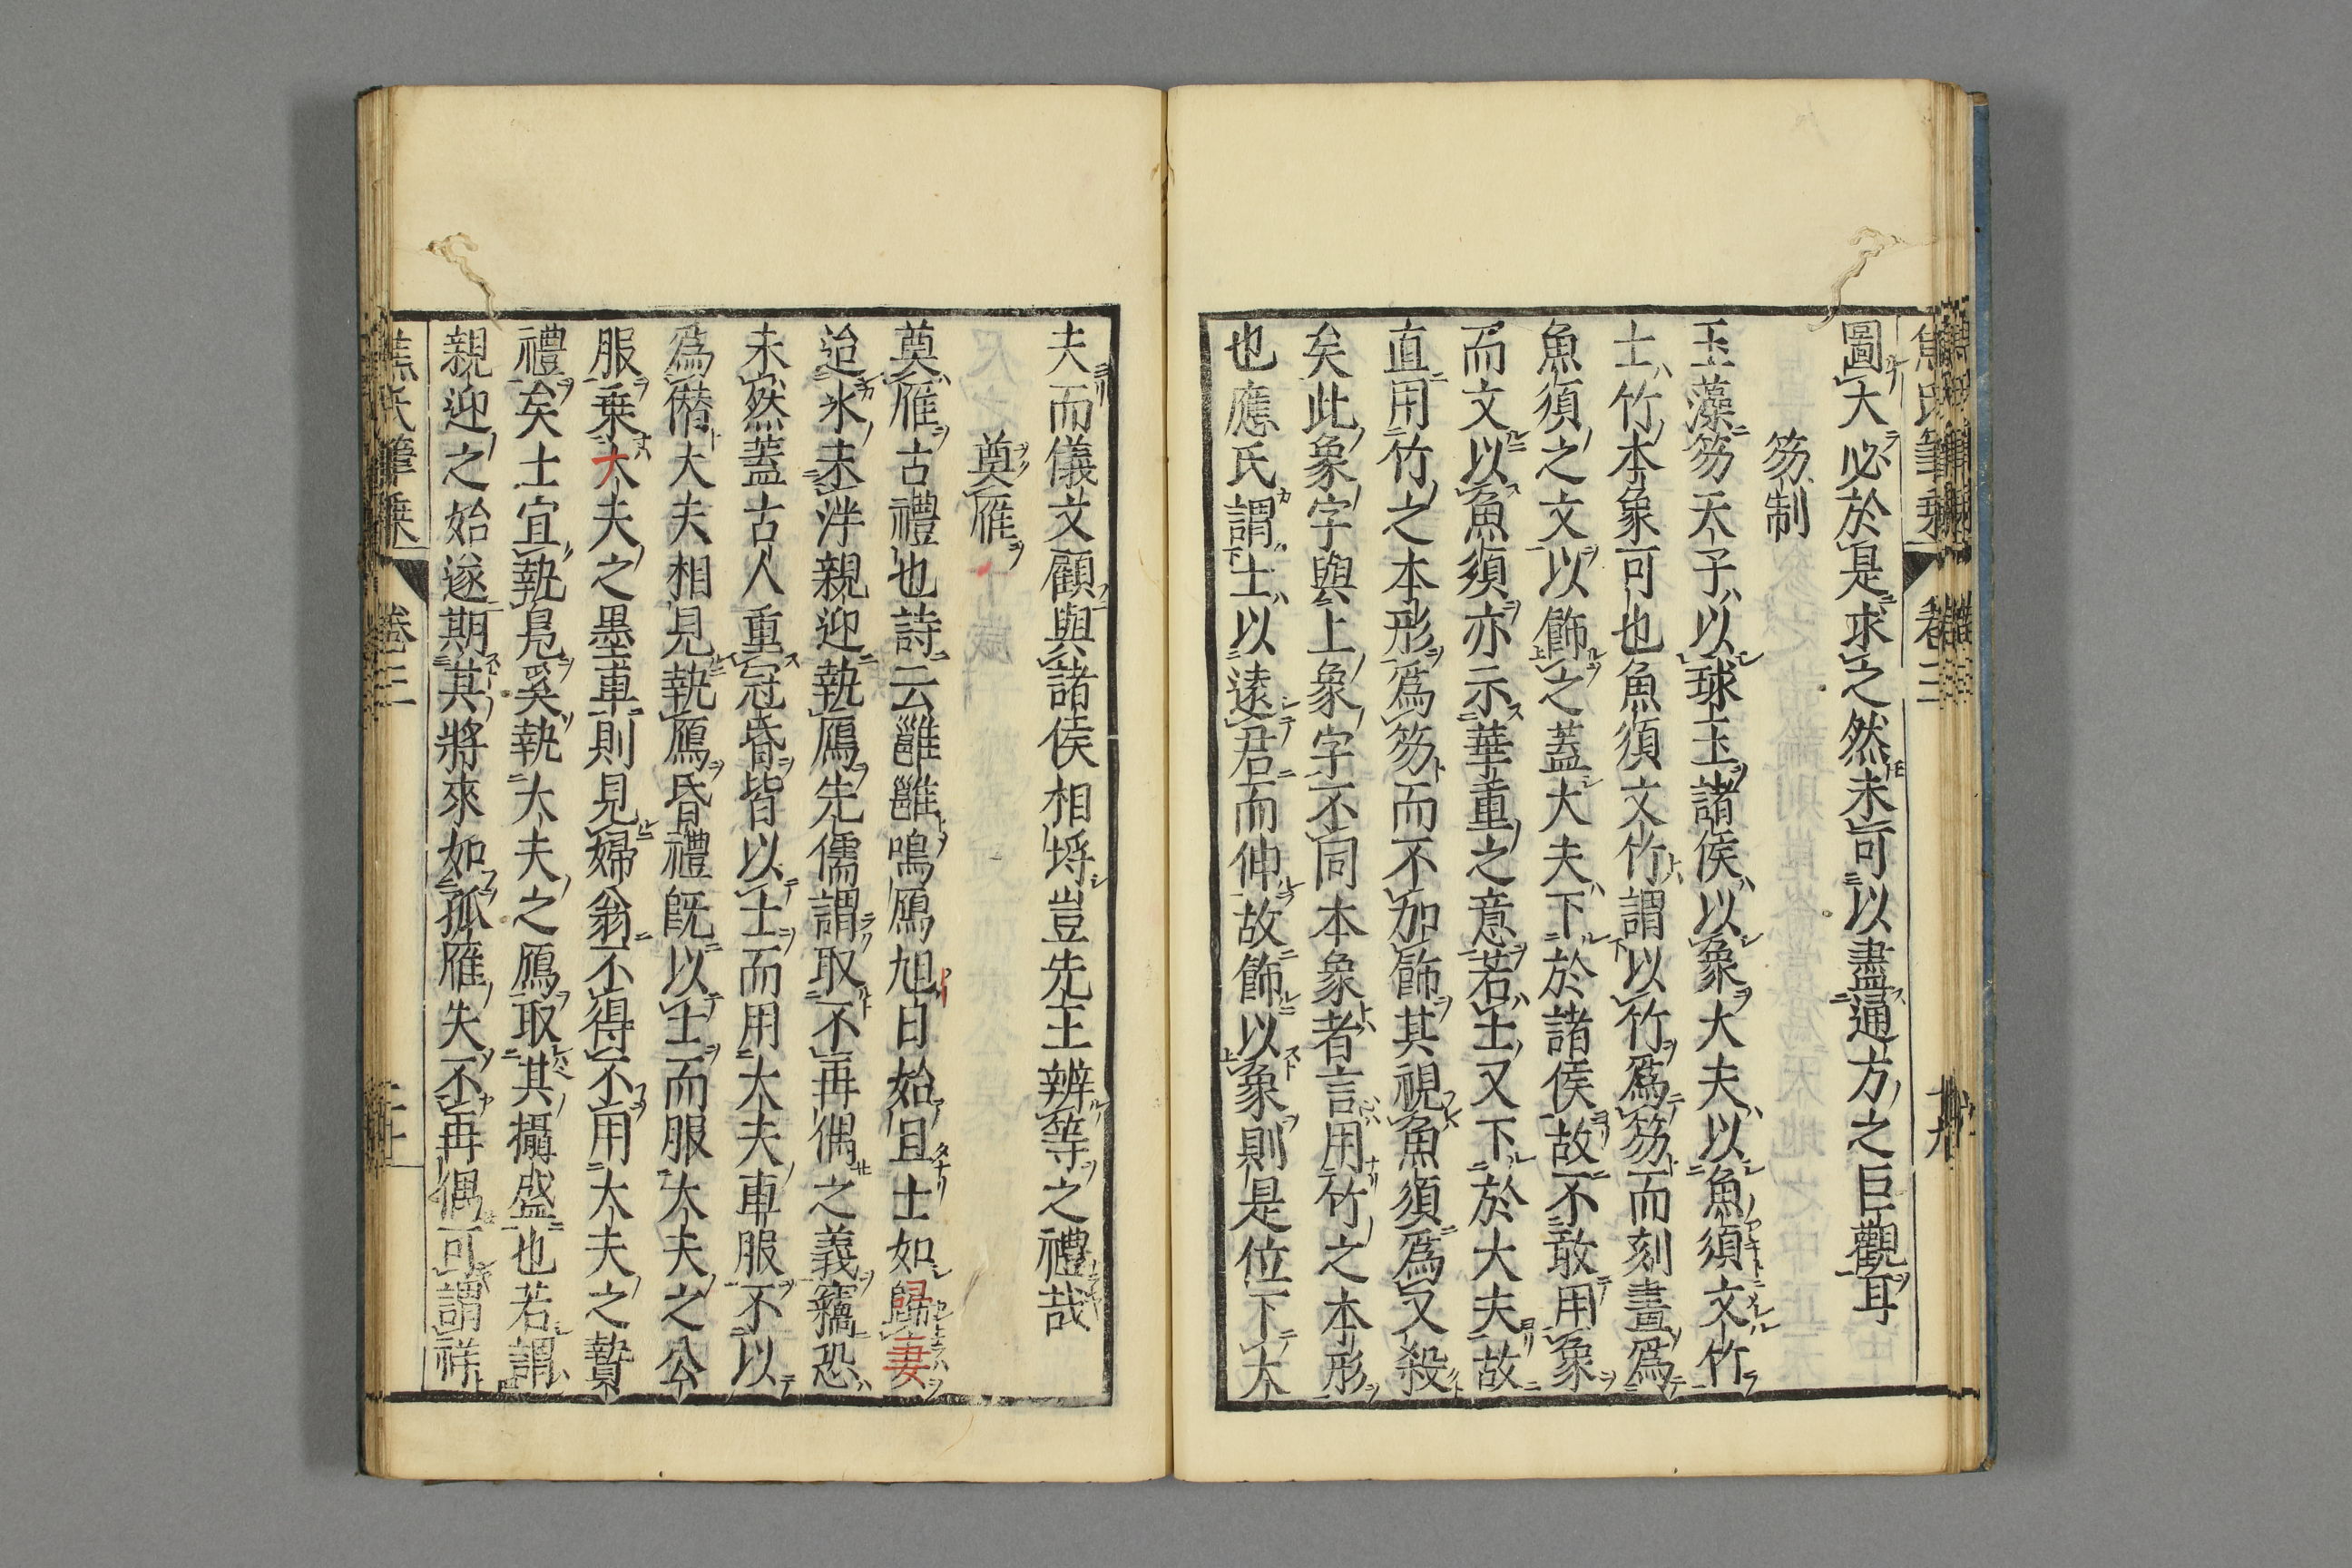 圖大必於是求之然未可以盡通方之巨觀耳
笏制
玉藻笏天子以球玉諸侯以象大夫以魚須文竹
士竹本象可也魚須文竹謂以竹爲笏而刻畫爲
魚須之文以飾之蓋大夫下於諸侯故不敢用象
而文以魚須亦示華重之意若士又下於大夫故
直用竹之本形爲笏而不加飾其視魚須爲又殺
矣此象字與上象字不同本象者言用竹之本形
也應氏謂士以遠君而伸故飾以象則是位下大
夫而儀文顧與諸侯相埒豈先王辨等之禮哉
奠雁
奠雁古禮也詩云雝雝鳴鴈旭日始旦士如歸妻
迨氷未泮親迎執鴈先儒謂取不再偶之義竊恐
未然蓋古人重冠昏皆以士而用大夫車服不以
爲僭大夫相見執鴈昏禮既以士而服大夫之公
服乗大夫之墨車則見婦翁不得不用大夫之贄
禮矣士宜執鳬奚執大夫之鴈取其攝盛也若謂
親迎之始遂期其將來如孤雁失不再偶可謂祥
焦氏筆乗
卷三
二十